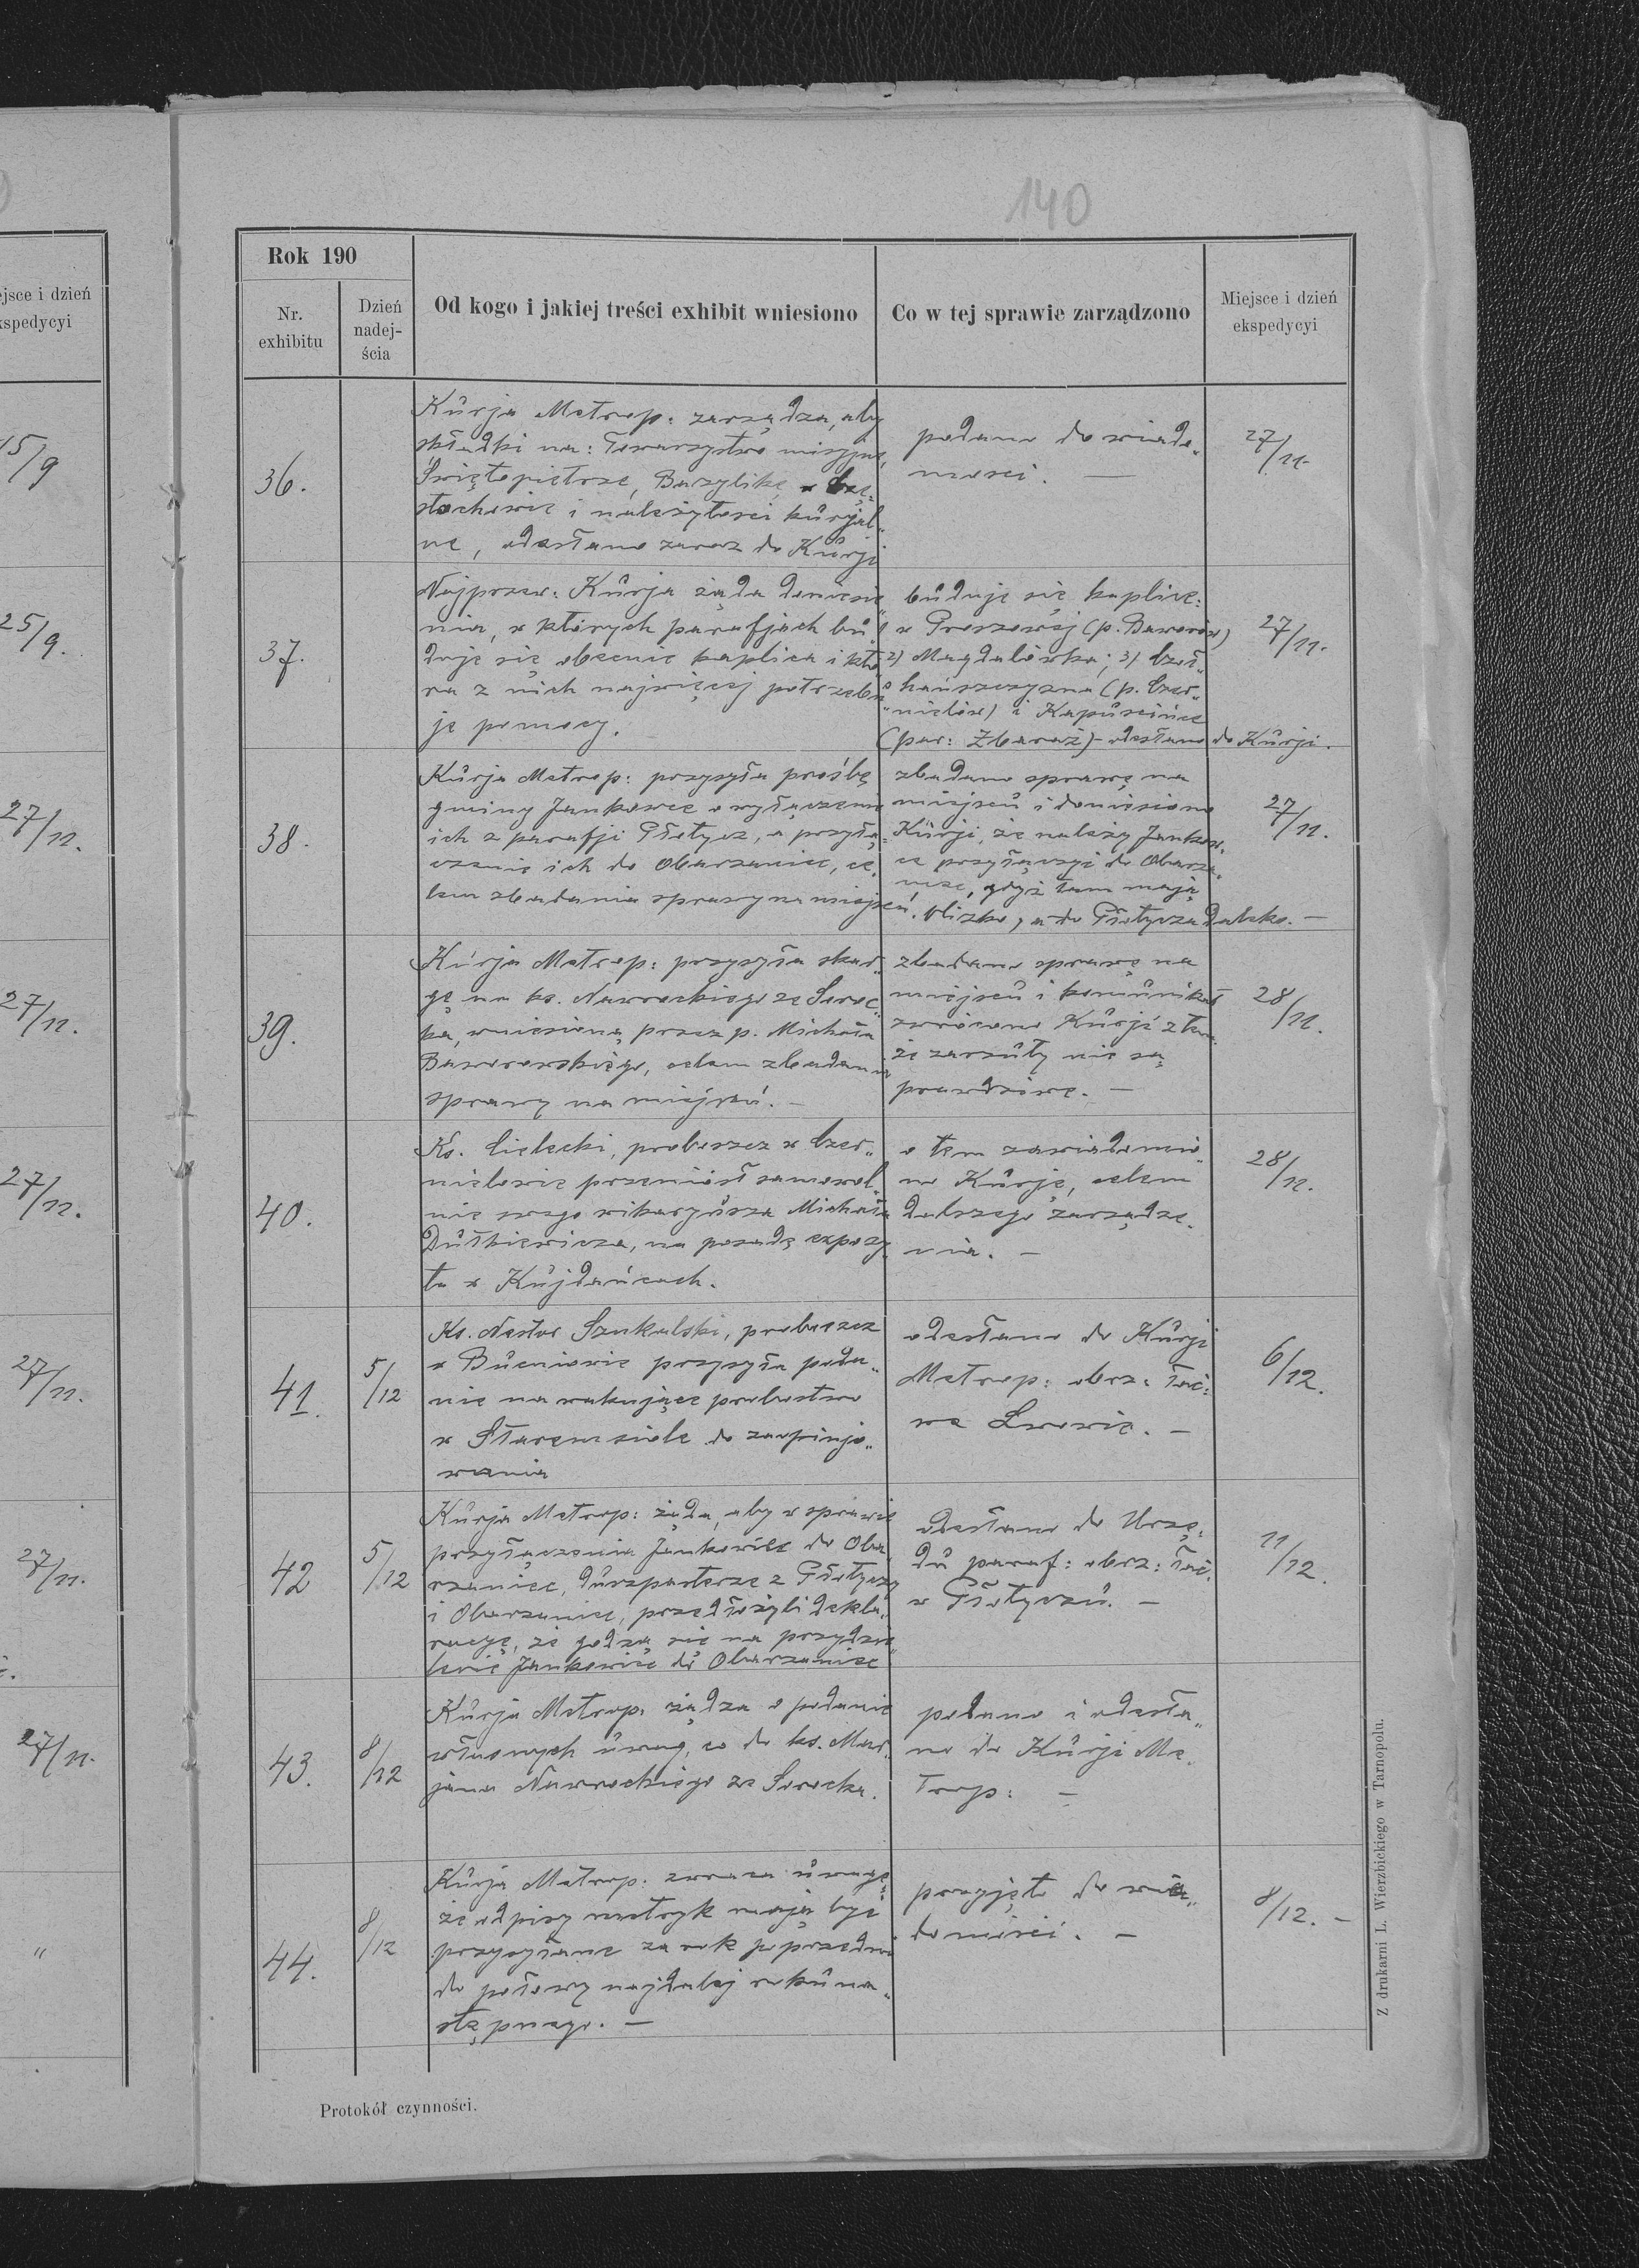 140
Rok 190
Nr.
exhibitu
Dzień
nadej-
ścia
Od kogo i jakiej treści exhibit wniesiono
Co w tej sprawie zarządzono
Miejsce i dzień
ekspedycyi
ejsce i dzień
kspedycyi
15/9
25/9.
27/11.
27/11.
27/11.
27/11.
27/11.
27/11.
"
36.
Kurja Metrop: zarządza, aby
składki na: Towarzystwo misyjne,
Świętopietrze, Bazylikę w Czę„
stochowie i należytości kurjal„
ne, odesłano zaraz do Kurji
podano do wiado„
mości. —
27/11.
37.
Najprzew: Kurja żąda doniesie„
nia, w których parafjach bu„
duje się obecnie kaplica i któ„
ra z nich najwięcej potrzebu„
je pomocy.
buduje się kaplice:
1) w Proszowej (p. Baworów)
2) Magdalówka; 3) Czoł„
hańszczyzna (p. Czer„
nielów) i Kapuścińce
(par: Zbaraż) – odesłano do Kurji.
27/11.
38.
Kurja Metrop: przysyła prośbę
gminy Jankowce o wyłączenie
ich z parafji Płotycz, a przyłą„
czenie ich do Obarzaniec, ce„
lem zbadania sprawy na miejscu.
zbadano sprawę na
miejscu i doniesiono
Kurji, że należy Jankow„
ce przyłączyć do Obarza„
niec, gdyż tam mają
blizko, a do Płotycza daleko. —
27/11.
39.
Kurja Metrop: przysyła skar„
gę na ks. Nawrockiego ze Soroc„
ka, wniesioną przez p. Michała
Baworowskiego, celem zbadania
sprawy na miejscu. —
zbadano sprawę na
miejscu i komunikat
zwrócono Kurji z tem,
że zarzuty nie są
prawdziwe. —
28/11.
40.
Ks. Cielecki, proboszcz w Czer„
nielowie przeniósł samowol„
nie swego wikaryusza Michała
Dutkiewicza, na posadę expozy„
ta w Kujdańcach.
o tem zawiadomio„
no Kurję, celem
dalszego zarządze„
nia. —
28/11.
41.
5/12
Ks. Nestor Szukalski, proboszcz
w Bucniowie przysyła poda„
nie na wakujące probostwo
w Staremsiole do zaopinjo„
wania
odesłano do Kurji
Metrop: obrz: łać:
we Lwowie. —
6/12.
42
5/12
Kurja Metrop: żąda, aby w sprawie
przyłączenia Jankowiec do Oba„
rzaniec, duszpasterze z Płotyczy
i Obarzaniec, przedłożyli dekla„
rację, że godzą się na przydzie„
lenie Jankowiec do Obarzaniec
odesłano do Urzę„
du paraf: obrz: łać:
w Płotyczu. —
11/12.
43.
8/12
Kurja Metrop: żądza o podanie
własnych uwag, co do ks. Mar„
jana Nawrockiego ze Sorocka.
podano i odesła„
no do Kurji Me„
trop: —
44.
8/12
Kurja Metrop: zwraca uwagę,
że odpisy metryk mają być
przysyłane za rok poprzedni
do połowy najdalej roku na„
stępnego. —
przyjęto do wia„
domości. —
8/12. —
Protokół czynności.
Z drukarni L. Wierzbickiego w Tarnopolu.